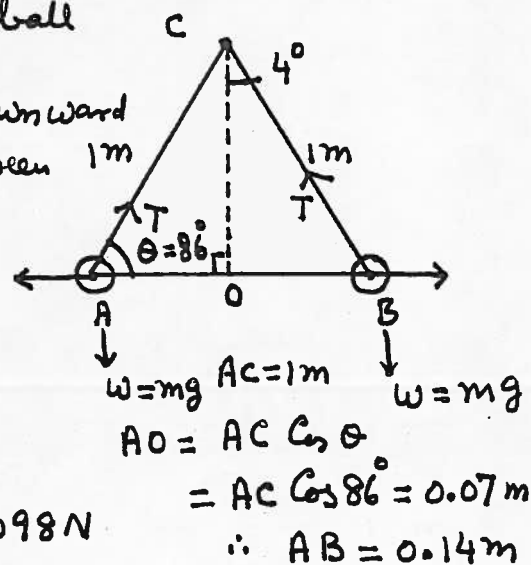 ball
C
4°
1m
1m
T
T
θ=86°
A
O
B
W=mg AC=1m
W=mg
AO = AC Cos θ
= AC Cos86° = 0.07m
98N
∴ AB = 0.14m